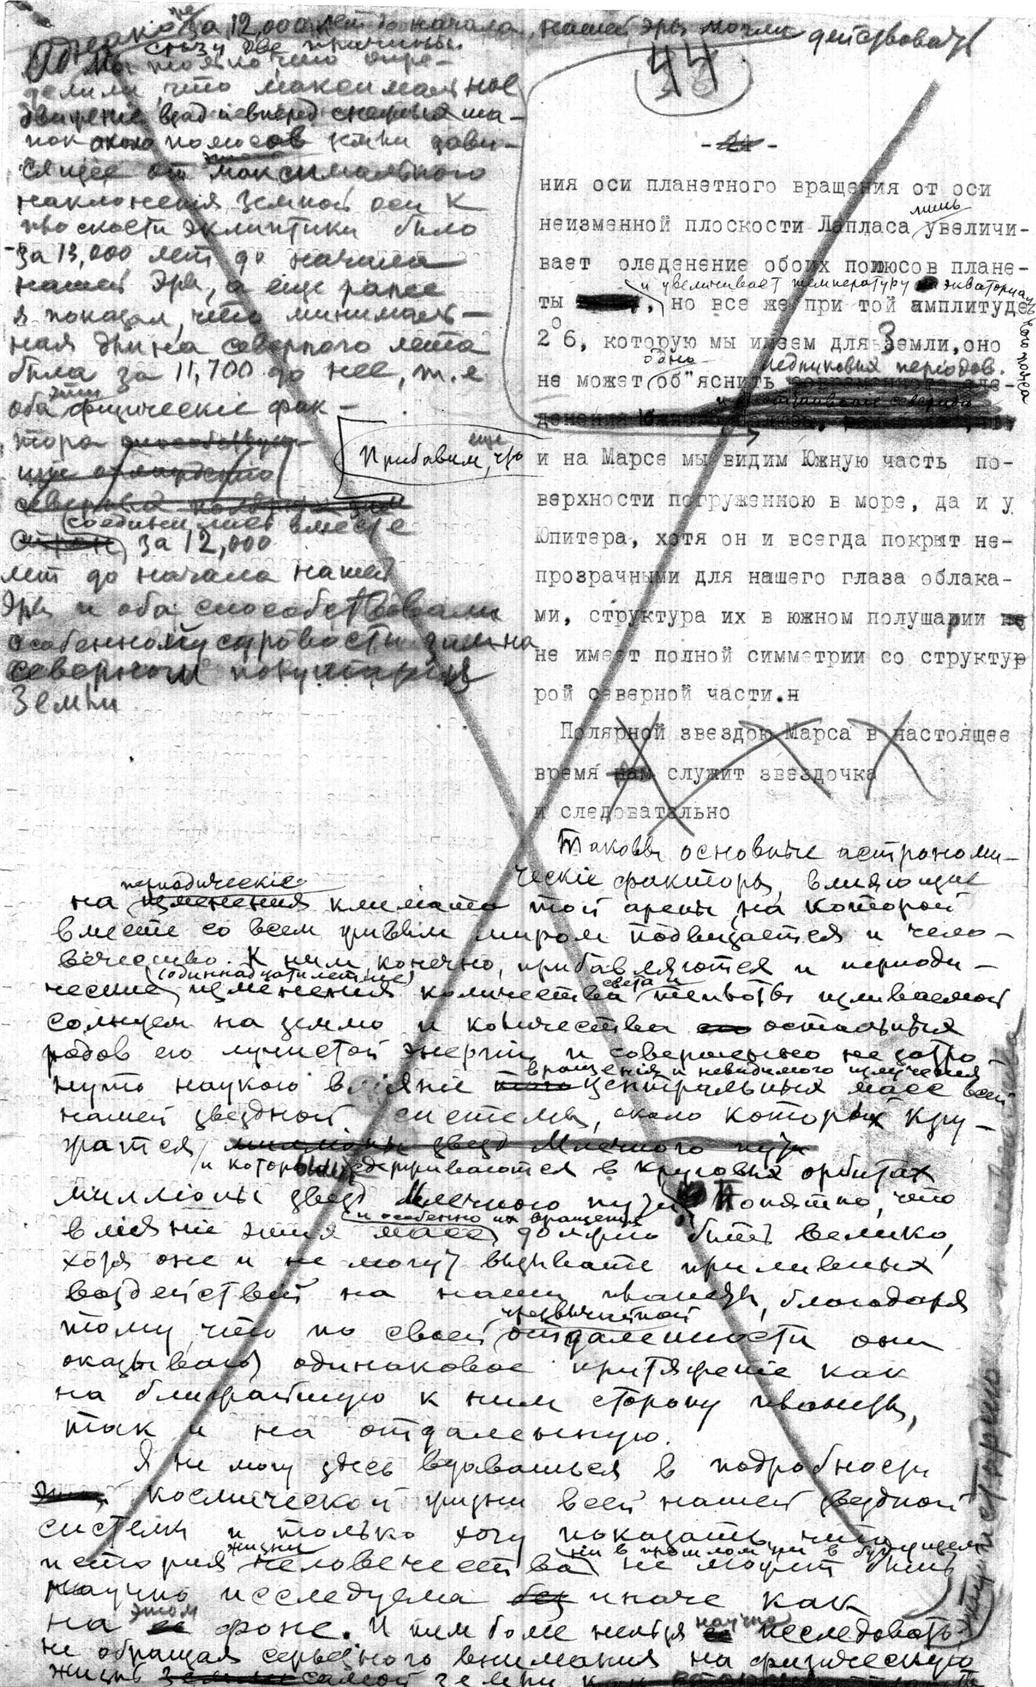 Однако за 12,000 лет до начала нашей Эры могли действовать
сразу две причины.
Мы только что опре-
делили, что максимальное
движение взад и вперед снежных ша-
пок около полюсов земли зави-
сящее от максимального
наклонения земной оси к
плоскости эклиптики было
за 13,000 лет до начала
нашей Эры, а еще ранее
я показал, что минималь-
ная длина северного лета
была за 11,700 до нее, т.е
оба эти физическіе фак-
тора
соединились вместе
за 12,000
лет до начала нашей
Эры и оба способствовали
особенной суровости зим на
северном полушарии
Земли
44
ния оси планетного вращения от оси
неизменной плоскости Лапласа лишь увеличи-
вает оледенение обоих полюсов плане-
и увеличивает температуру экваториального пояса
ты , но все же при той амплитуде
2°6, которую мы имеем для Земли, оно
не может об"яснить ледниковых периодов.
Прибавим еще, что
и на Марсе мы видим Южную часть по-
верхности погруженною в море, да и у
Юпитера, хотя он и всегда покрыт не-
прозрачными для нашего глаза облака-
ми, структура их в южном полушарии не
не имеет полной симметрии со структур
рой северной части.н
Полярной звездою Марса в настоящее
время нам служит звездочка
и следовательно
Таковы основные астрономи-
ческіе факторы, влияющие
на периодическіе изменения климата той арены на которой
вместе со всем живым миром подвизается и чело-
вечество. К ним, конечно, прибавляются и периоди-
ческие (одиннадцатилетние) изменения количества света и теплоты изливаемой
солнцем на землю и количества остальных
родов его лучистой энергии и совершенно не затро
нуто наукою влияніе вращения и невидимого излучения центральных масс всей
нашей звездной системы, около которых кру-
жатся миллионы звезд Млечного пути
и которыми удерживаются в круговых орбитах
миллионы звезд Млечного пути. Понятно, что
вліяніе этих масс и особенно их вращения должно быть велико,
хотя оне и не могут вызывать приливных
воздействий на наши планеты, благодаря
тому, что по своей чрезвычайной отдаленности они
оказывают одинаковое притяжение как
на ближайшую к ним сторону планеты,
так и на отдаленную.
Я не могу здесь вдаваться в подробности
космической жизни всей нашей звездной
системы и только хочу показать, что
история жизни человечества ни в прошлом ни в будущем не может быть
научно исследуема иначе как
на этом фоне. И тем более нельзя научно исследовать
не обращая серьезного внимания на физическую
жизнь самой земли